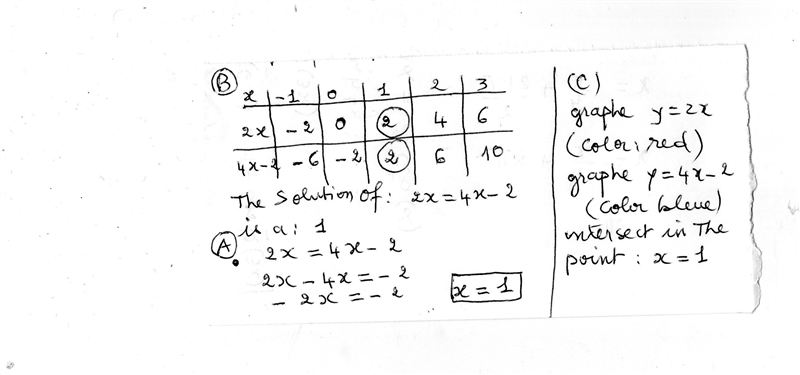 B
x | -1 | 0 | 1 | 2 | 3
2x | -2 | 0 | 2 | 4 | 6
4x-2 | -6 | -2 | 2 | 6 | 10
The Solution of: 2x = 4x - 2
is a: 1
A
2x = 4x - 2
2x - 4x = -2
-2x = -2
x = 1
(C)
graphe y = 2x
(color: red)
graphe y = 4x - 2
(color bleue)
intersect in The
point: x = 1